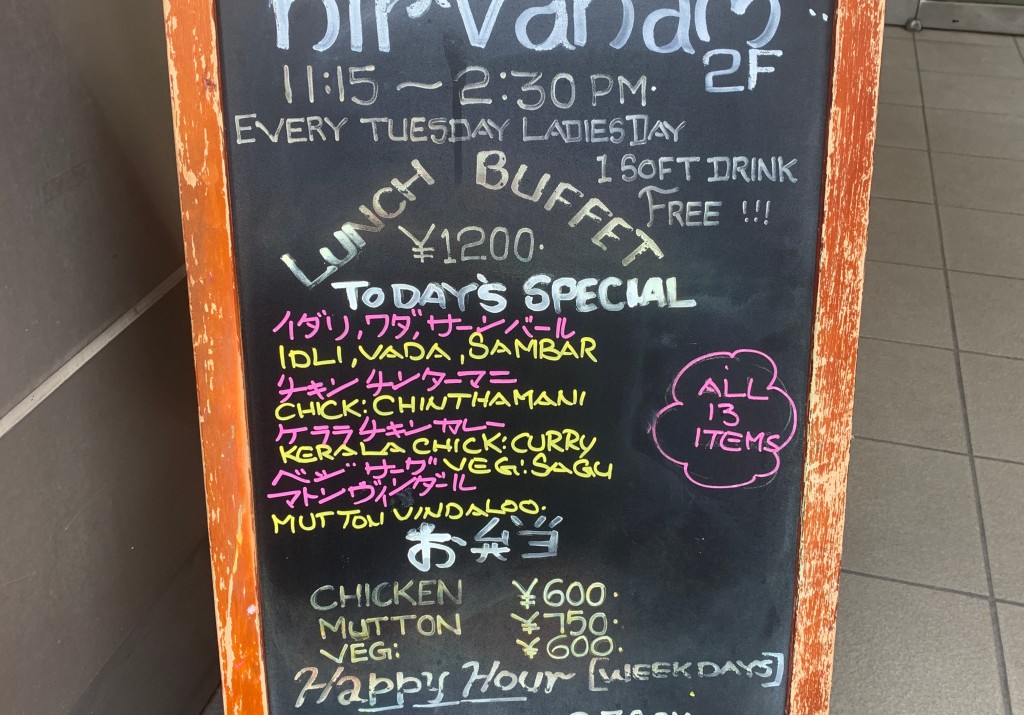 nirvanam
2F
11:15 ~ 2:30 PM.
EVERY TUESDAY LADIES DAY
1 SOFT DRINK
FREE !!!
LUNCH BUFFET
¥1200.
TODAY'S SPECIAL
イダリ,ワダ,サーンバール
IDLI, VADA, SAMBAR
チキン チンターマニ
CHICK: CHINTHAMANI
ケララ チキン カレー
KERALA CHICK: CURRY
ベジ サーグ VEG: SAGU
マトン ヴィンダール
MUTTON VINDALOO.
ALL
13
ITEMS
お弁当
CHICKEN ¥600.
MUTTON ¥750.
VEG: ¥600.
Happy Hour [WEEK DAYS]